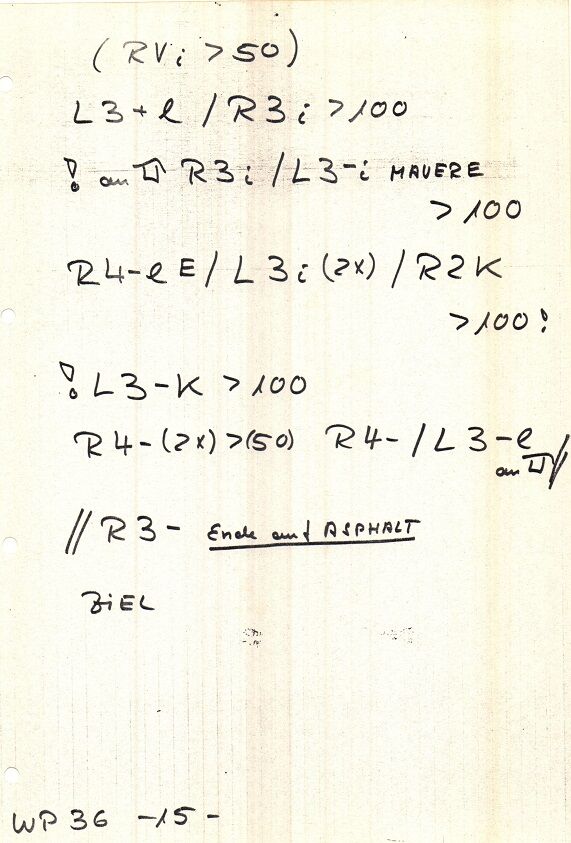 ( RVi > 50 )
L3+l / R3i > 100
! an R3i / L3-i MAUERE
> 100
R4-l E / L3i (2x) / R2K
> 100 !
! L3-K > 100
R4-(2x) > (50) R4- / L3-l
an //
// R3- Ende auf ASPHALT
ZiEL
WP 36 -15-